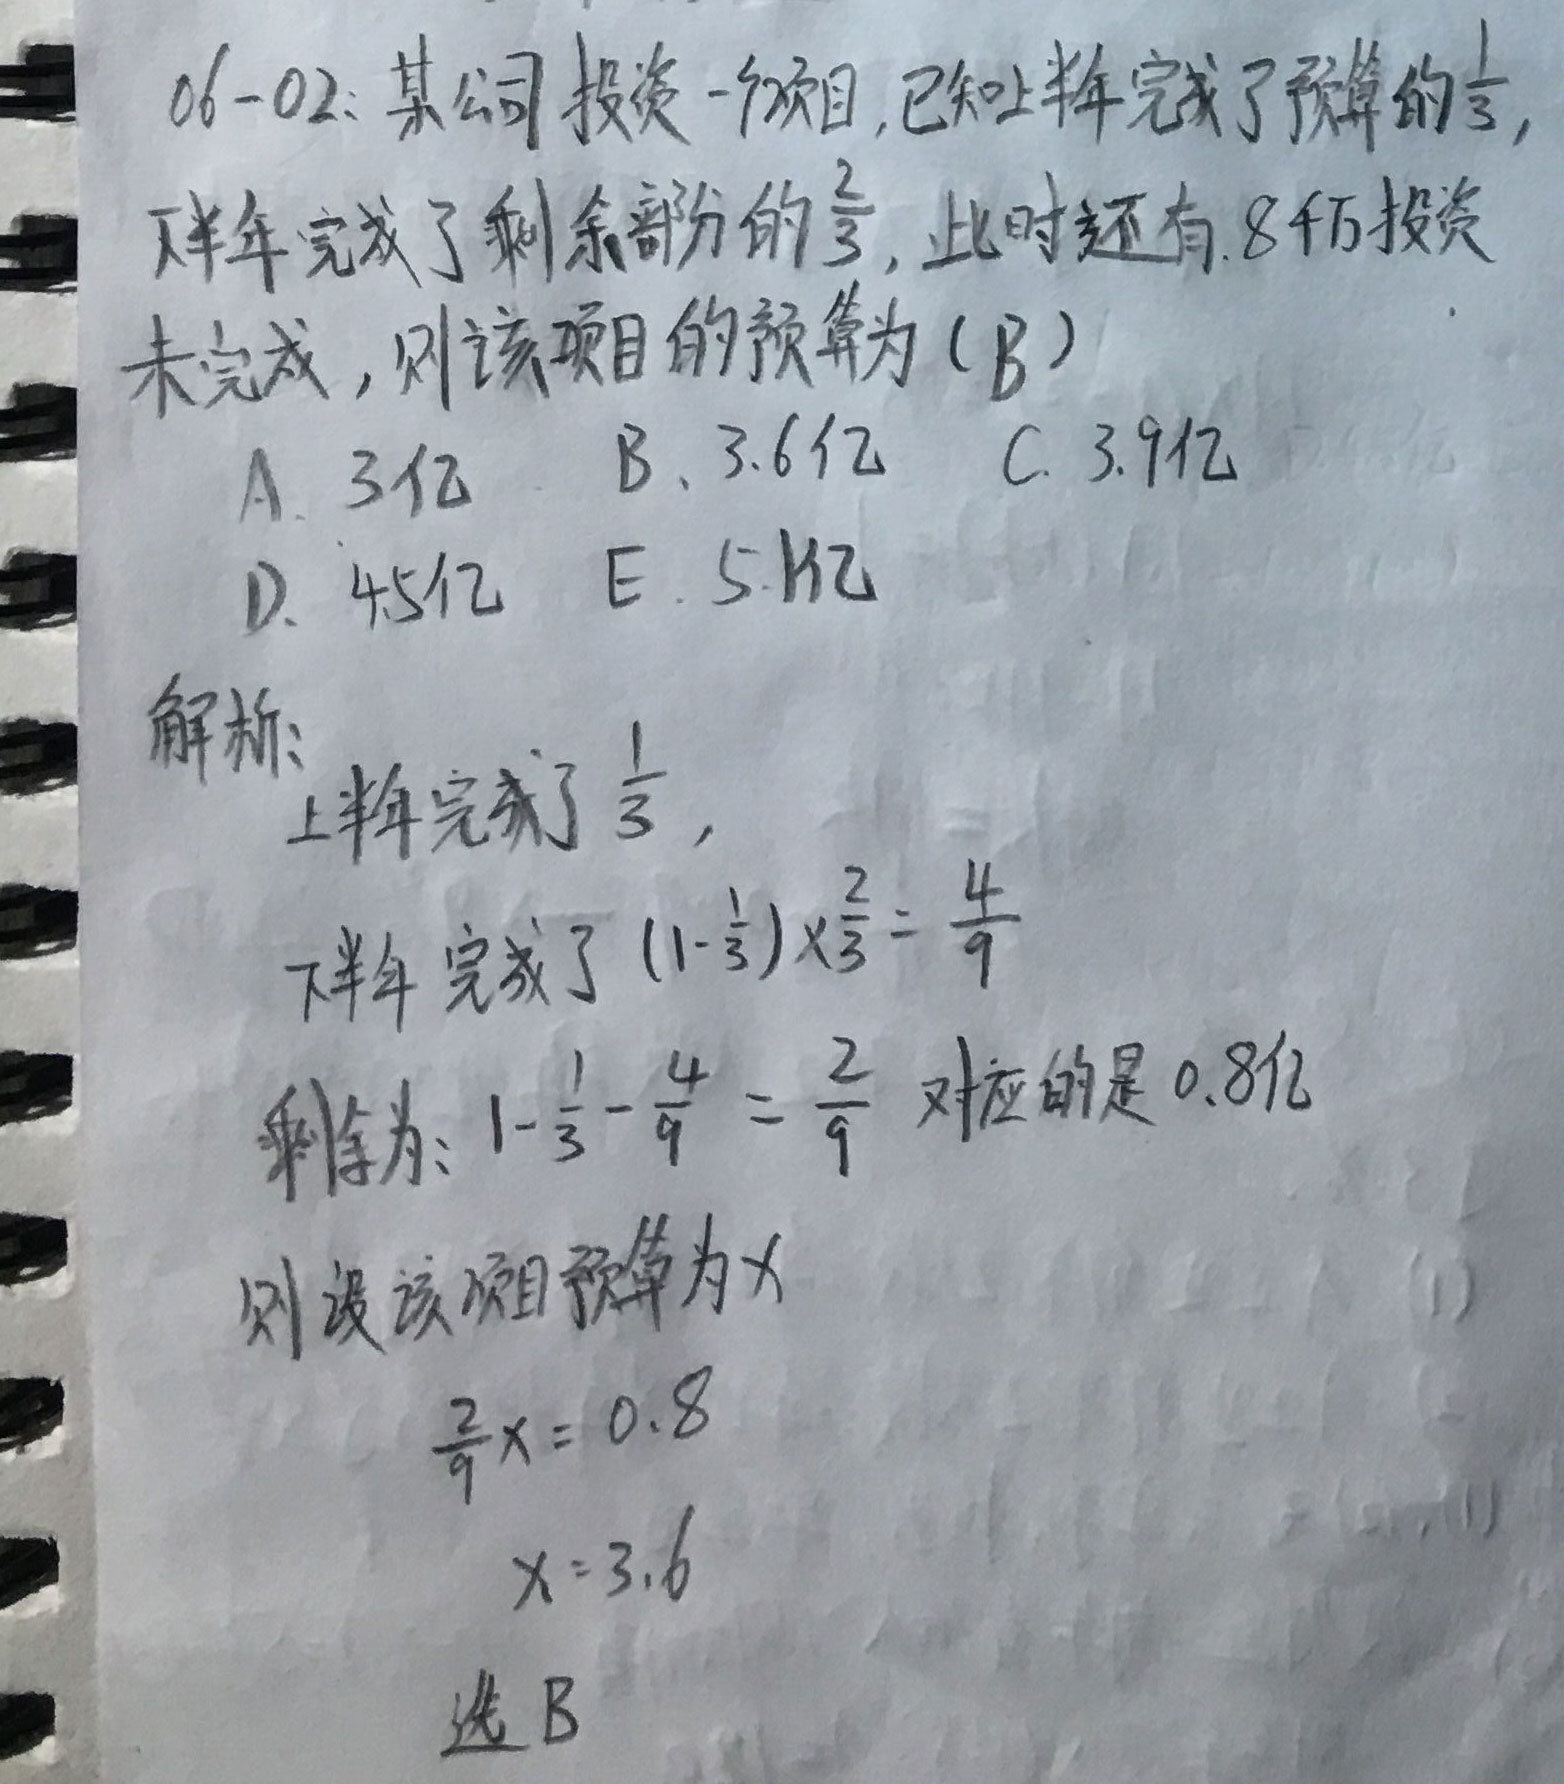 06-02: 某公司投资一个项目,已知上半年完成了预算的1/3,
下半年完成了剩余部分的2/3,此时还有8千万投资
未完成,则该项目的预算为(B)
A. 3亿 B、3.6亿 C. 3.9亿
D. 4.5亿 E. 5.1亿
解析:
上半年完成了1/3,
下半年完成了(1-1/3)×2/3=4/9
剩余为:1-1/3-4/9=2/9 对应的是0.8亿
则设该项目预算为x
2/9x=0.8
x=3.6
选B